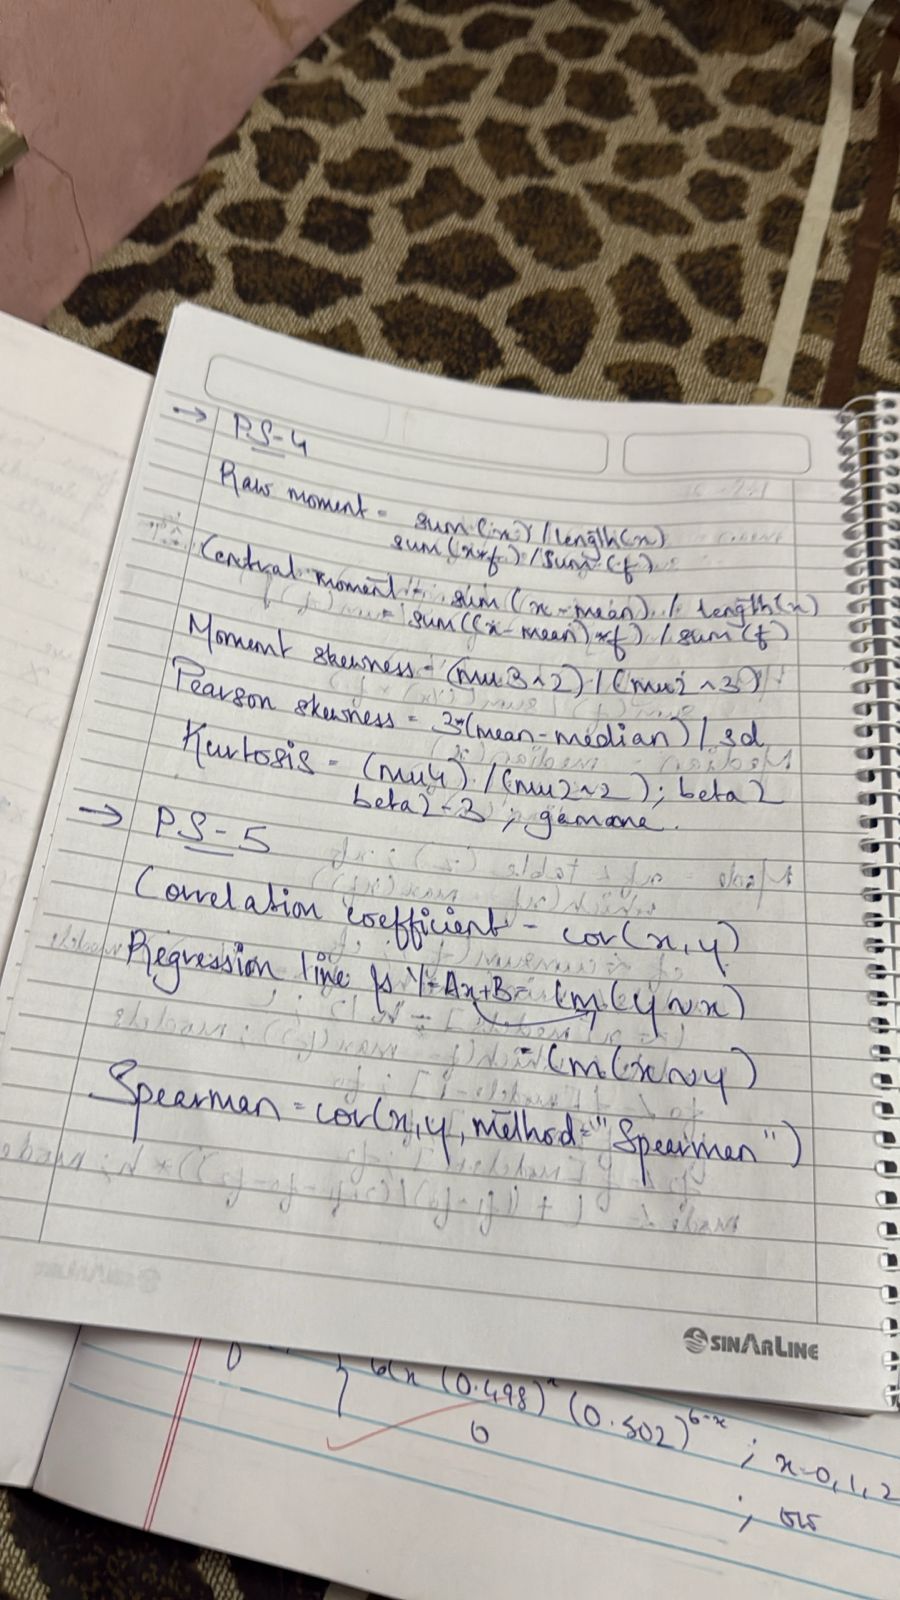 → PS-4
Raw moment = sum(x) / length(x)
sum(x*f) / sum(f)
Central moment = sum(x-mean) / length(x)
= sum((x-mean)*f) / sum(f)
Moment skewness = (mu3^2) / (mu2^3)
Pearson skewness = 3*(mean-median) / sd
Kurtosis = (mu4) / (mu2^2); beta2
beta2-3 ; gamone.
→ PS-5
Correlation coefficient - cor(x,y)
Regression line Y=Ax+B = lm(y~x)
= lm(x~y)
Spearman = cor(x,y, method="Spearman")
SINARLINE
(0.498) (0.502)^6-x ; x=0,1,2
6
; ow